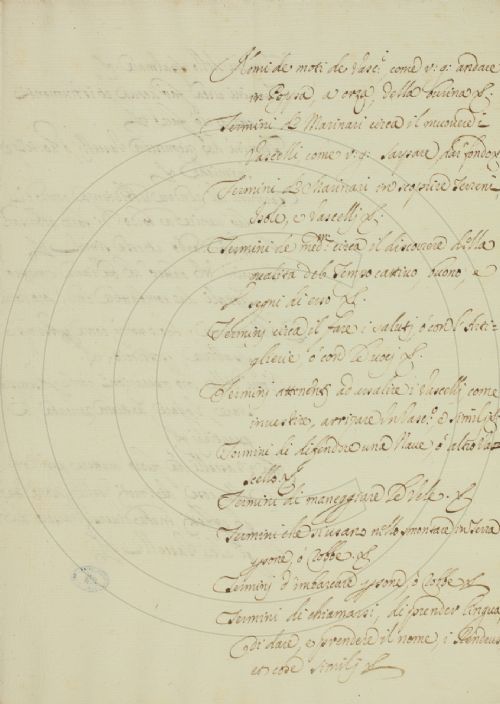 Nomi de moti de Vasc.ˡ come v: g: andare
in Poppa, a orza, della burina &.
Termini de Marinari circa il muovere i
Vascelli come v: g: Sarpare, dar fondo &
Termini de Marinari in scoprire Terreni,
Isole, e Vascelli &.
Termini de med.ᵐⁱ circa il discorrere della
qualità del Tempo cattivo buono, e
segni di esso &.
Termini circa il fare i saluti ó con l'Arti-
glierie ó con le voci &.
Termini attenenti ad assalire i Vascelli come
investire, arrivare in Vasc.ˡ e Simili &
Termini di difendere una Nave ó altro Va-
scello &
Termini di maneggiare le Vele &
Termini che si usano nello smontare in Terra
persone, ó Robbe &
Termini d'imbarcare persone, ó Robbe &
Termini di chiamarsi, di prender lingua,
di dare, e prendere il nome, i
et cose Simili &